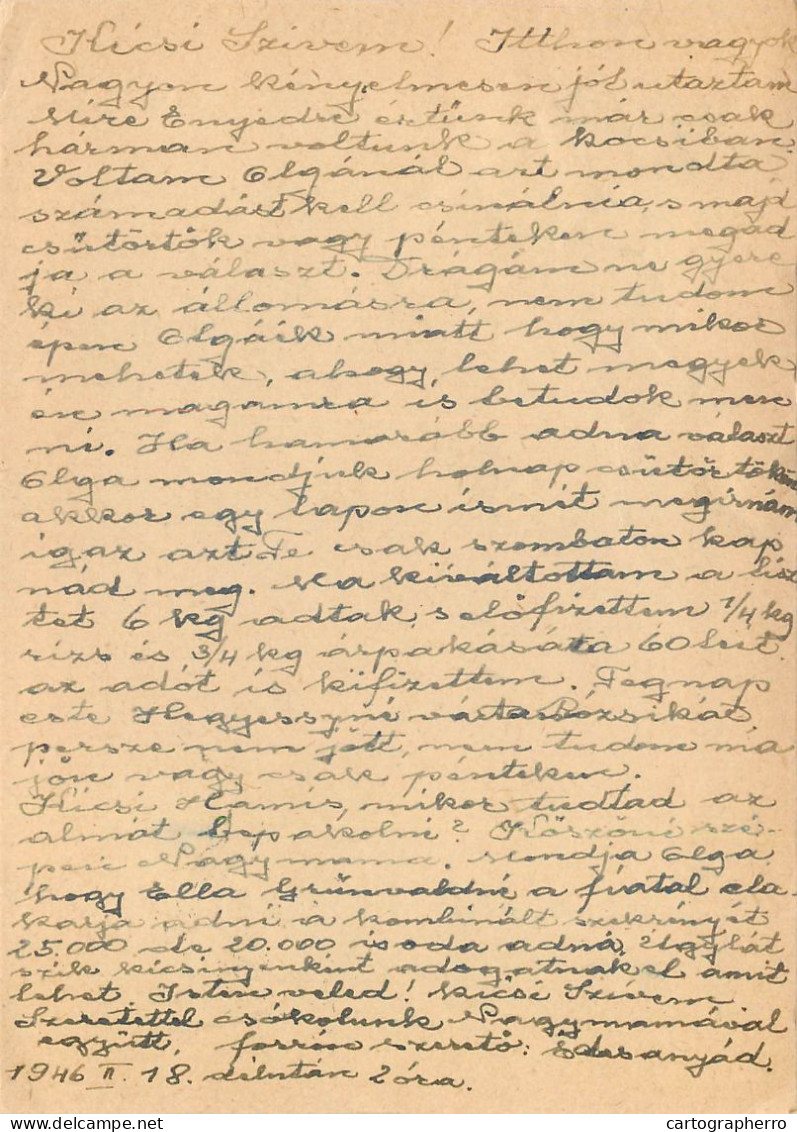 Kicsi Szivem! Itthon vagyok
Nagyon kényelmesen jól utaztam
Mire Enyedre értünk már csak
hárman voltunk a kocsiban.
Voltam Olgánál azt mondta
számadást kell csinálnia, s majd
csütörtök vagy pénteken megad
ja a választ. Drágám ne gyere
ki az állomásra, nem tudom
épen Olgáék miatt hogy mikor
mehetek, ahogy lehet megyek
én magamra is betudok men
ni. Ha hamarább adna választ
Olga mondjuk holnap csütörtökön
akkor egy lapon ismét megirnám
igaz azt Te csak szombaton kap
nád meg. Ma kiváltottam a lisz
tet 6 kg adtak, s előfizettem 1/4 kg
rizs és 3/4 kg árpakására 60 leit.
az adót is kifizettem. Tegnap
este Hegyessyné várta Rózsikát
persze nem jött, nem tudom ma
jön vagy csak pénteken.
Kicsi Hamis, mikor tudtad az
almát bepakolni? Köszöni szé-
pen Nagymama. Mondja Olga
hogy Ella Grünvaldné a fiatal ela
karja adni a kombinált szekrényét
25.000 de 20.000 is oda adná. Ugylát
szik kicsinyenként adogatnak el amit
lehet. Isten veled! Kicsi Szívem
Szeretettel csókolunk Nagymamával
együtt, forrón szerető: Édesanyád.
1946 II. 18. délután 2 óra.
cartographerro